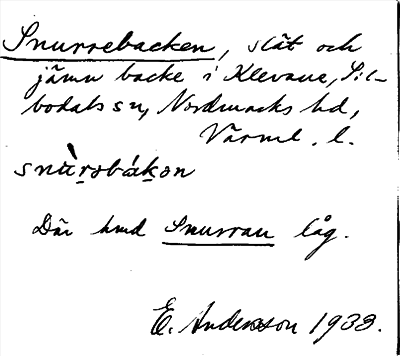 Snurrebacken, slät och
jämn backe i Klevane, Sil-
bodals sn, Nordmarks hd,
Värml. l.
snùrəbákən
Där hmd Snurran låg.
E. Andersson 1933.